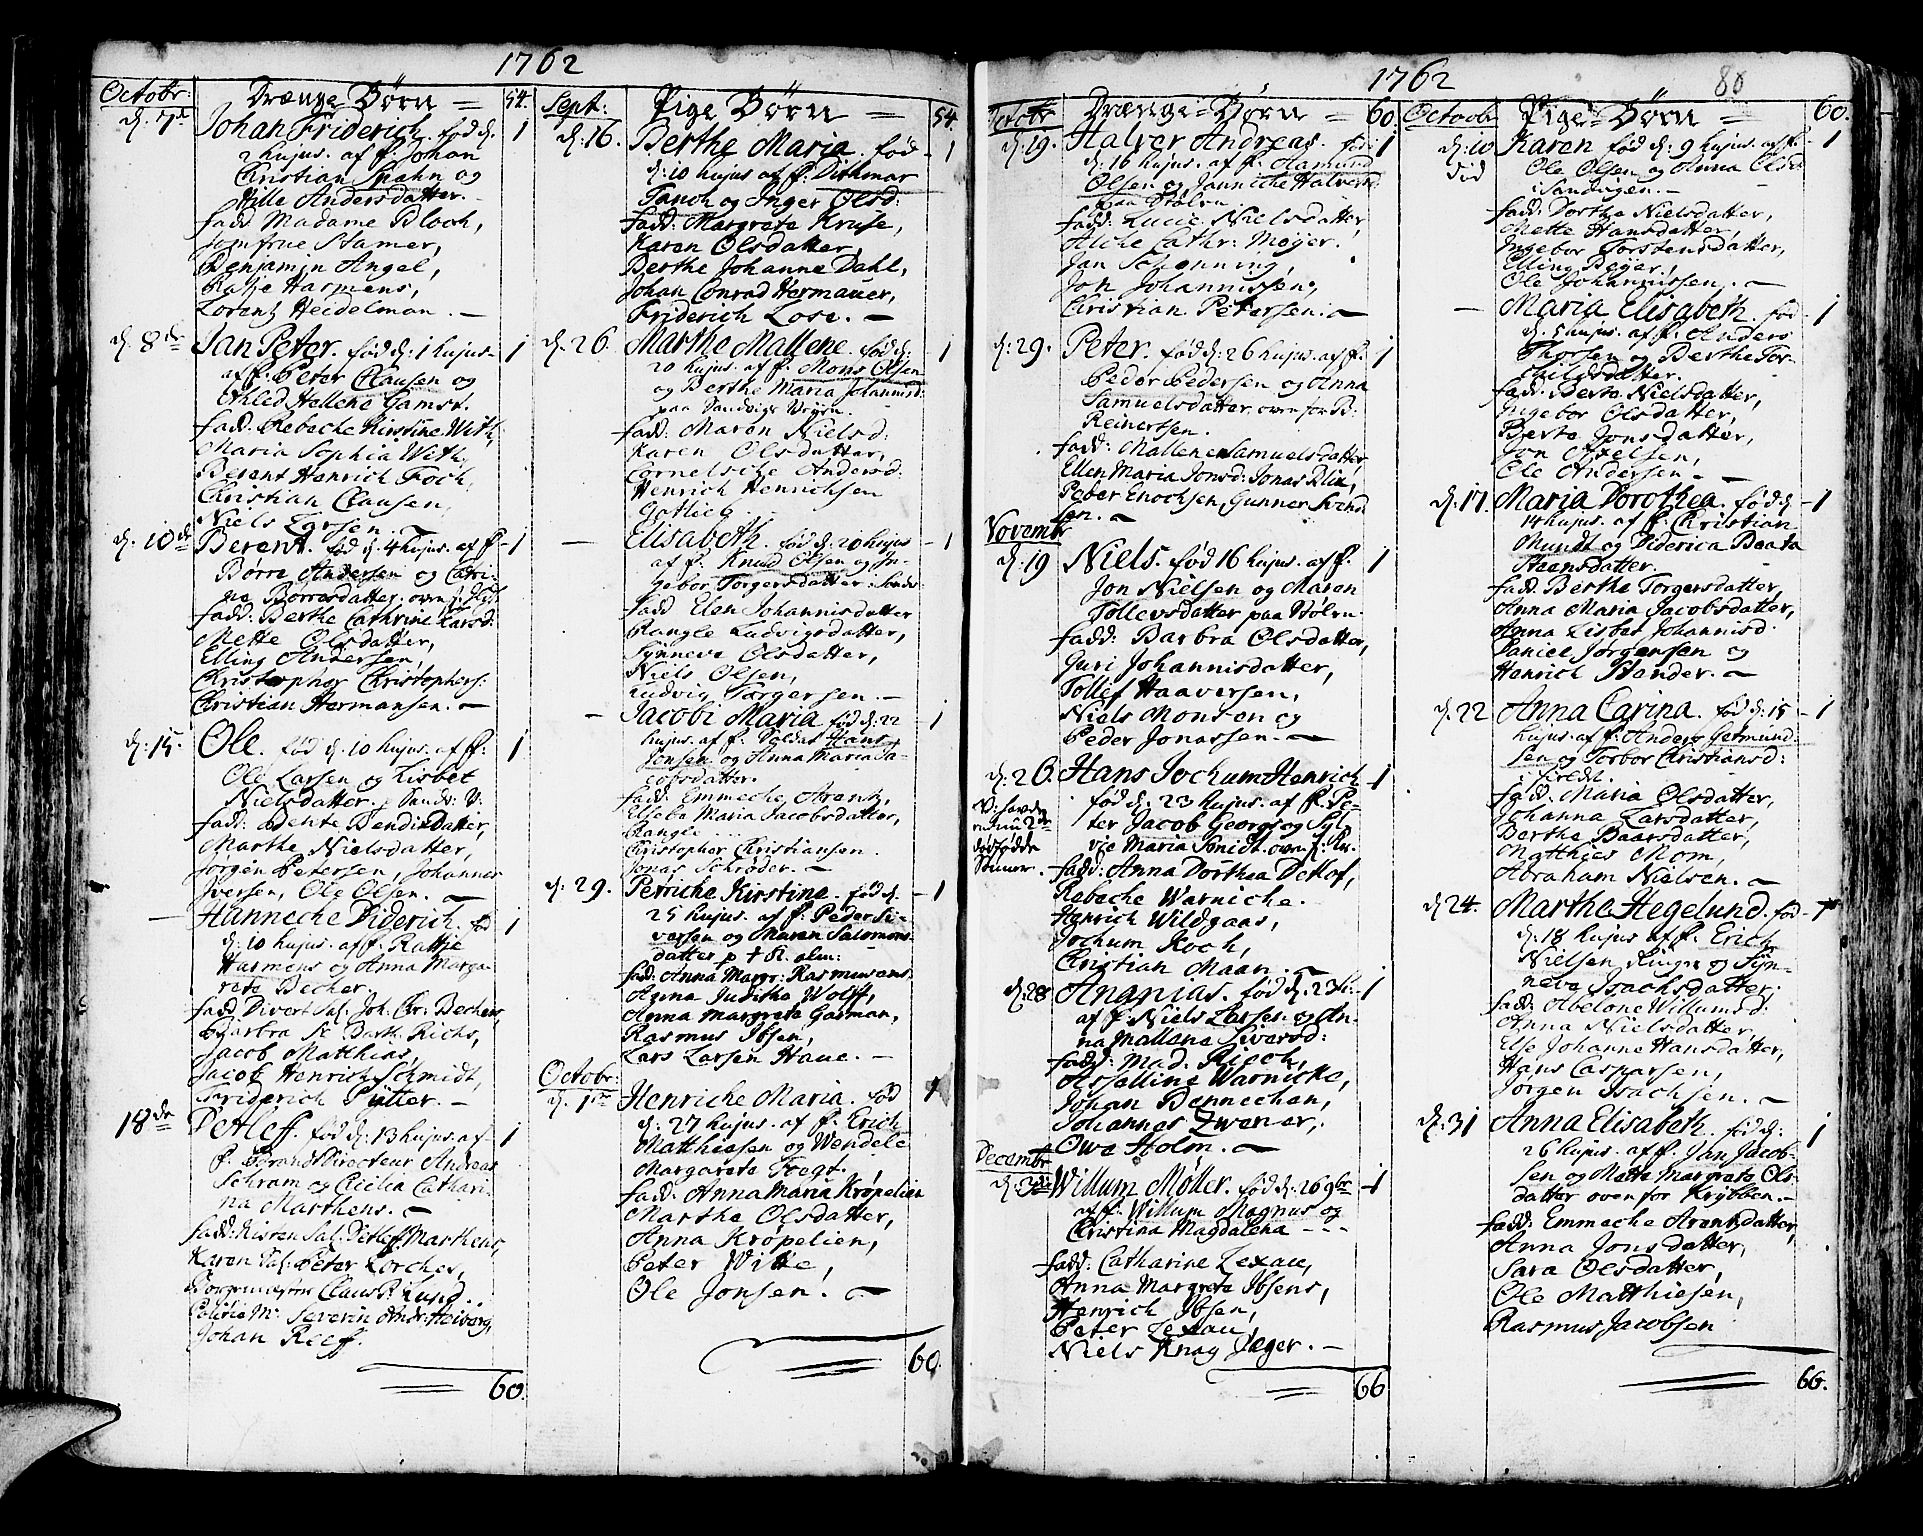 1762
Octobr: Drænge Børn = 54.
d. 7de Johan Friderich. fød d. 1
2 hujus. af f. Johan
Christian Spahn og
Hille Andersdatter.
fadd: Madame Bloch,
Jomfrue Stamer,
Benjamin Angel,
Ratje Harmens,
Lorentz Heidelman. —
d. 8de Jan Peter. fød d: 1 hujus 1
af f: Peter Clausen og
Ethled Hellene Gamst.
fadd: Rebeche Kirstine With,
Maria Sophia With,
Berent Henrich Foch,
Christian Clausen,
Niels
d. 10de Berent. fød d. 4 hujus. af f. 1
Børre Andersen og Cathri-
ne Børresdatter.
fadd: Berthe Cathrine Larsd:
Mette Olsdatter,
Elling Andersen,
Christopher Christophers:
Christian Hermansen. —
d: 15. Ole. fød d. 10 hujus. af f: 1
Ole Larsen og Lisbet
Nielsdatter. i Sandv: V.
fadd: Bente Bendixdatter,
Marthe Nielsdatter,
Jørgen Petersen, Johannes
Iversen, Ole Olsen. —
— Hanneche Diderich. fød 1
d. 10 hujus. af f. Rattje
Harmens og Anna Marga-
reta Becher.
fadd Divert Sal: Joh. Chr: Bechers,
Barbra Sl Barth. Richs,
Jacob Matthias,
Jacob Henrich Schmidt,
Friderich Pütter. —
18de Detleff. fød d: 13 hujus. af 1
f. BrandDirecteur Andreas
Schram og Cicilia Cathari-
na Marthens. —
fadd: Kisten Sal: Detleff Marthens,
Karen Sal: Peter Lorches,
Borgemester Claus Lund.
Politie Mr: Severin Andr: Heiberg,
Johan Reeff.
60.
Sept: Pige Børn = 54.
d: 16. Berthe Maria. fød 1
d: 10 hujus af f: Dithmar
Tanch og Inger Olsd:
fadd: Margrete Kruse,
Karen Olsdatter,
Berthe Johanne Dahl,
Johan Conrad Hermauer,
Friderich Lose. —
d. 26 Marthe Mallene. fød d: 1
20 hujus. af f. Mons Olsen
og Berthe Maria Johannisd:
paa Sandvigs Veyen.
fadd: Maren Nielsd:
Karen Olsdatter,
Cornelsche Andersd.
Henrich Henrichsen
Gotlieg.
— Elisabeth. fød d: 20 hujus 1
af f. Knud Olsen og In-
gebor Torgersdatter:
fadd Elen Johannisdatter
Rangle Ludvigsdatter,
Sÿnneve Olsdatter,
Niels Olsen,
Ludvig Torgersen. —
— Jacobi Maria fød d: 22 1
hujus. af f: Soldat Hans
Jonsen og Anna Maria Ja-
cobsdatter.
fadd: Emmeche Arentz,
Elsebe Maria Jacobsdatter,
Rangle ....
Christopher Christiansen.
Jonas Schrøder. —
d: 29. Petriche Kirstine. fød d. 1
25 hujus. af f: Peder Si-
versen og Maren Salomons
datter
fad: Anna Margr: Rasmusens
Anna Juditha Wolff,
Anna Margrete Garman,
Rasmus Ibsen,
Lars Larsen Haue. —
Octobr:
d. 1ste Henriche Maria. fød 1
d: 27 hujus. af f. Erich
Matthiesen og Wendele
Margareta Voegt.
fadd: Anna Maria Krøpelien
Marthe Olsdatter,
Anna Krøpelien,
Peter Witte,
Ole Jonsen. —
60.
1762 80
Octobr Drænge = Børn = 60.
d: 19. Halver Andreas. fød 1
d: 16 hujus. af f. Aamund
Olsen og Janniche Halversd:
paa Stølen
fadd: Lucie Nielsdatter,
Alche Cathr: Meyer.
Jan Schønning,
Jon Johannissen,
Christian Petersen. —
d: 29. Peter. fød d: 26 hujus. af f. 1
Peder Pedersen og Anna
Samuelsdatter. oven for B:
Reinertsen.
fadd: Mallene Samuelsdatter,
Ellen Maria Jonsd: Jonas Blix,
Peter Enochsen, Gunner Svend
sen. —
Novembr
d: 19 Niels. fød 16 hujus. af f. 1
Jon Nielsen og Maren
Tollevsdatter paa Stølen
fadd: Barbra Olsdatter,
Guri Johannisdatter,
Tollef Haaversen,
Niels Monsen og
Peder Jonassen. —
d: 26. Hans Jochum Henrich 1
fød d: 23 hujus. af f. Pe-
ter Jacob Georgs og Syl-
vie Maria Smidt.
fadd: Anna Dorthea Detlof,
Rebeche Warniche.
Henrich Wildgaas,
Jochum Koch,
Christian Maan. —
d: 28 Ananias. fød d: 23 1
af f: Niels Larsen og An-
na Mallena Siversd:
fadd: Mad. Rieck,
Assellina Warnicke,
Johan Bennechen,
Johannes Zwerner,
Owe Holm. —
Decembr
d. 3die Willum Møller. fød d: 26 9br 1
af f. Willum Magnus og
Christina Magdalena - - -
fadd: Catharine Lexau,
Anna Margrete Ibsens,
Henrich Ibsen,
Peter Lexau,
Niels Knag Jæger. —
66
Octobr Pige = Børn = 60.
d: 10 Karen fød d: 9 hujus. af f. 1
Ole Olsen og Anna
i Sandvigen. —
fadd: Dorthe Nielsdatter,
Mette Hansdatter,
Ingebor Torstensdatter,
Elling Beÿer,
Ole Johannissen. —
— Maria Elisabeth. fød 1
d. 5 hujus. af f. Anders
Thorsen og Berthe Tor-
childsdatter.
fadd: Berte Nielsdatter,
Ingebor Olsdatter,
Berte Jonsdatter,
Jon Axelsen,
Ole Andersen —
d: 17. Maria Dorothea. fød d 1
14 hujus. af f: Christian
Mundt og Diderica Beata
Steensdatter.
fadd: Berthe Torgersdatter,
Anna Maria Jacobsdatter,
Anna Lisbet Johannisd.
Daniel Jørgensen og
Henrich Stander. —
d. 22 Anna Carina. fød d: 15 1
hujus. af f: Anders Germund
sen og Torbor Christiansd:
fadd: Maria Olsdatter,
Johanna Larsdatter,
Berthe Baarsdatter,
Matthies Mom,
Abraham Nielsen. —
d 24. Marthe Hegelund. fød 1
d. 18 hujus af f. Erich
Nielsen Ringe og Sÿn-
neve Isachsdatter.
fadd: Abelone Willumsd:
Anna Nielsdatter
Else Johanne Hansdatter,
Hans Caspersen,
Jørgen Isachsen. —
d: 31 Anna Elisabeth. fød d: 1
26 hujus. af f. Jan Jacob-
sen og Mette Margrete Ols-
datter oven for Krybben. —
fadd: Emmeche Arentsdatter,
Anna Jonsdatter,
Sara Olsdatter,
Ole Matthiesen,
Rasmus Jacobsen
66.